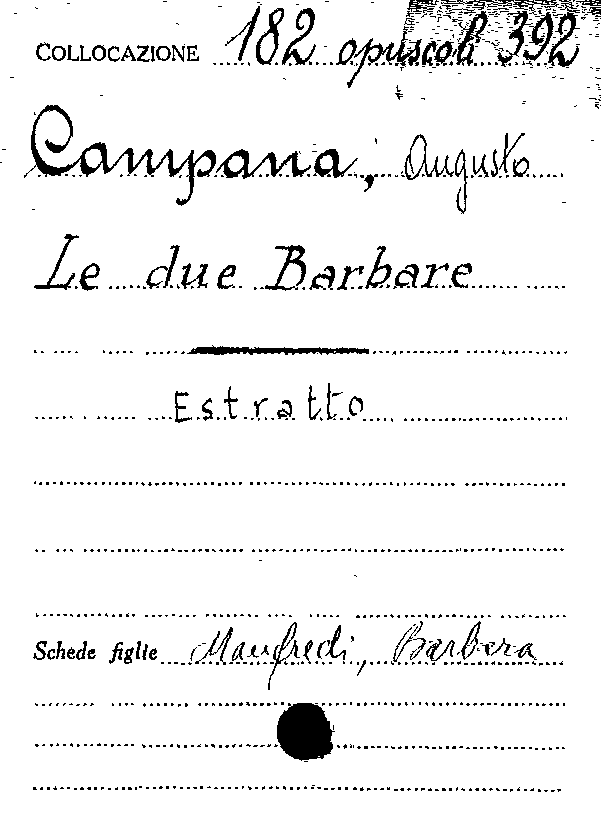 COLLOCAZIONE 182 opuscoli 392
Campana, Augusto
Le due Barbare
Estratto
Schede figlie Manfredi, Barbera